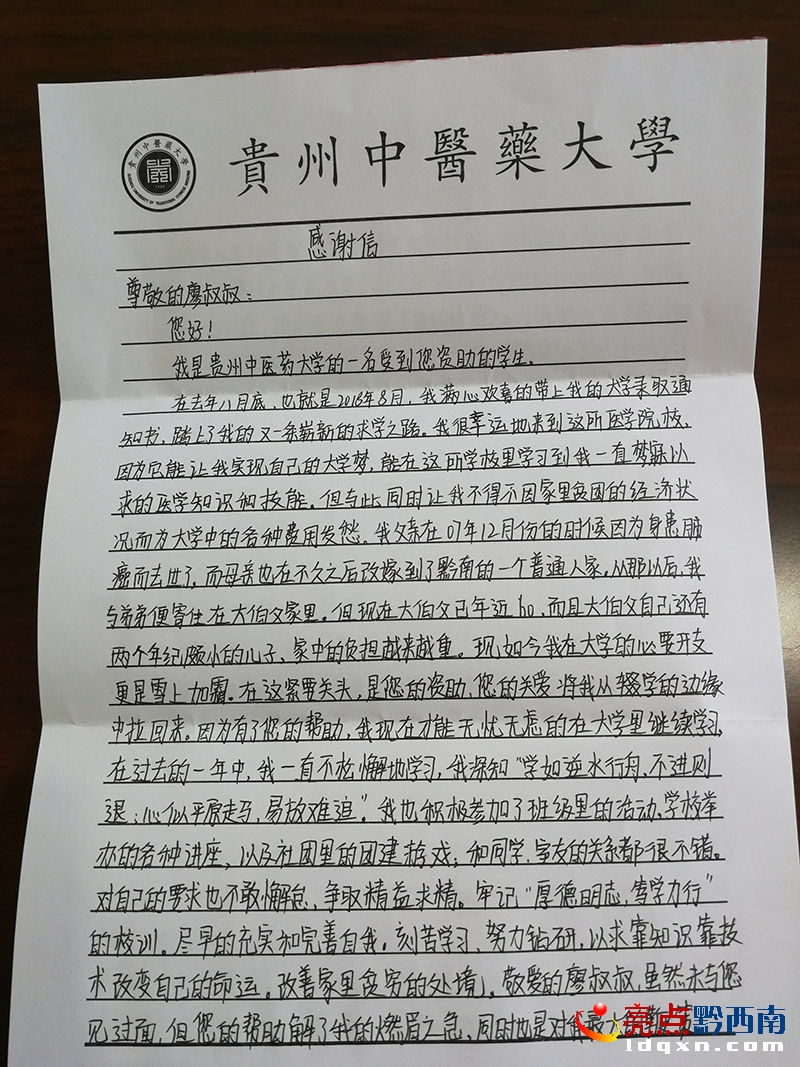 貴州中醫藥大學
貴州中醫藥大學
GUIZHOU UNIVERSITY OF TRADITIONAL CHINESE MEDICINE
感谢信
尊敬的廖叔叔：
您好！
我是贵州中医药大学的一名受到您资助的学生。
在去年八月底，也就是2018年8月，我满心欢喜的带上我的大学录取通
知书，踏上了我的又一条崭新的求学之路。我很幸运地来到这所医学院校，
因为它能让我实现自己的大学梦，能在这所学校里学习到我一直梦寐以
求的医学知识和技能。但与此同时让我不得不因家里贫困的经济状
况而为大学中的各种费用发愁。我父亲在07年12月份的时候因为身患肺
癌而去世了，而母亲也在不久之后改嫁到了黔南的一个普通人家，从那以后，我
与弟弟便寄住在大伯父家里。但现在大伯父已年近60，而且大伯父自己还有
两个年纪颇小的儿子，家中的负担越来越重。现如今我在大学的必要开支
更是雪上加霜。在这紧要关头，是您的资助，您的关爱将我从辍学的边缘
中拉回来。因为有了您的帮助，我现在才能无忧无虑的在大学里继续学习，
在过去的一年中，我一直不松懈地学习，我深知“学如逆水行舟，不进则
退；心似平原走马，易放难追”。我也积极参加了班级里的活动、学校举
办的各种讲座，以及社团里的团建游戏；和同学，室友的关系都很不错。
对自己的要求也不敢懈怠，争取精益求精。牢记“厚德明志，笃学力行”
的校训。尽早的充实和完善自我，刻苦学习，努力钻研，以求靠知识靠技
术改变自己的命运。改善家里贫穷的处境。敬爱的廖叔叔，虽然未与您
见过面，但您的帮助解了我的燃眉之急，同时也是对我最大的
亮点黔西南
ldqxn.com